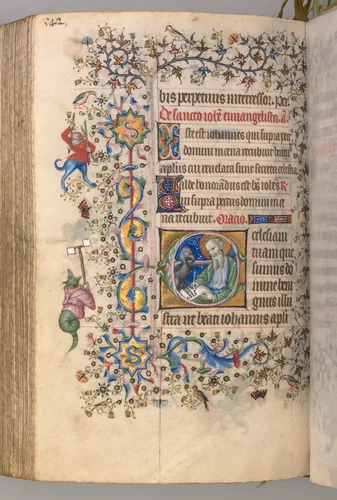 542.
bis perpetuus intercessor. Per.
De sancto ioh̄e euuangelista. a.
Iste est iohannes qui supra pec
domini in cena recubuit beatꝰ
aptūs cui reuelata sunt secreta celestia
Ualde honorandus est bt̄s iohēs R̄
Qui supra pectus domini in ce
na recubuit. Oracio.
Ecclesiam
tuam que
sumus do
mine beni
gnus illu
stra ut beati iohannis apli